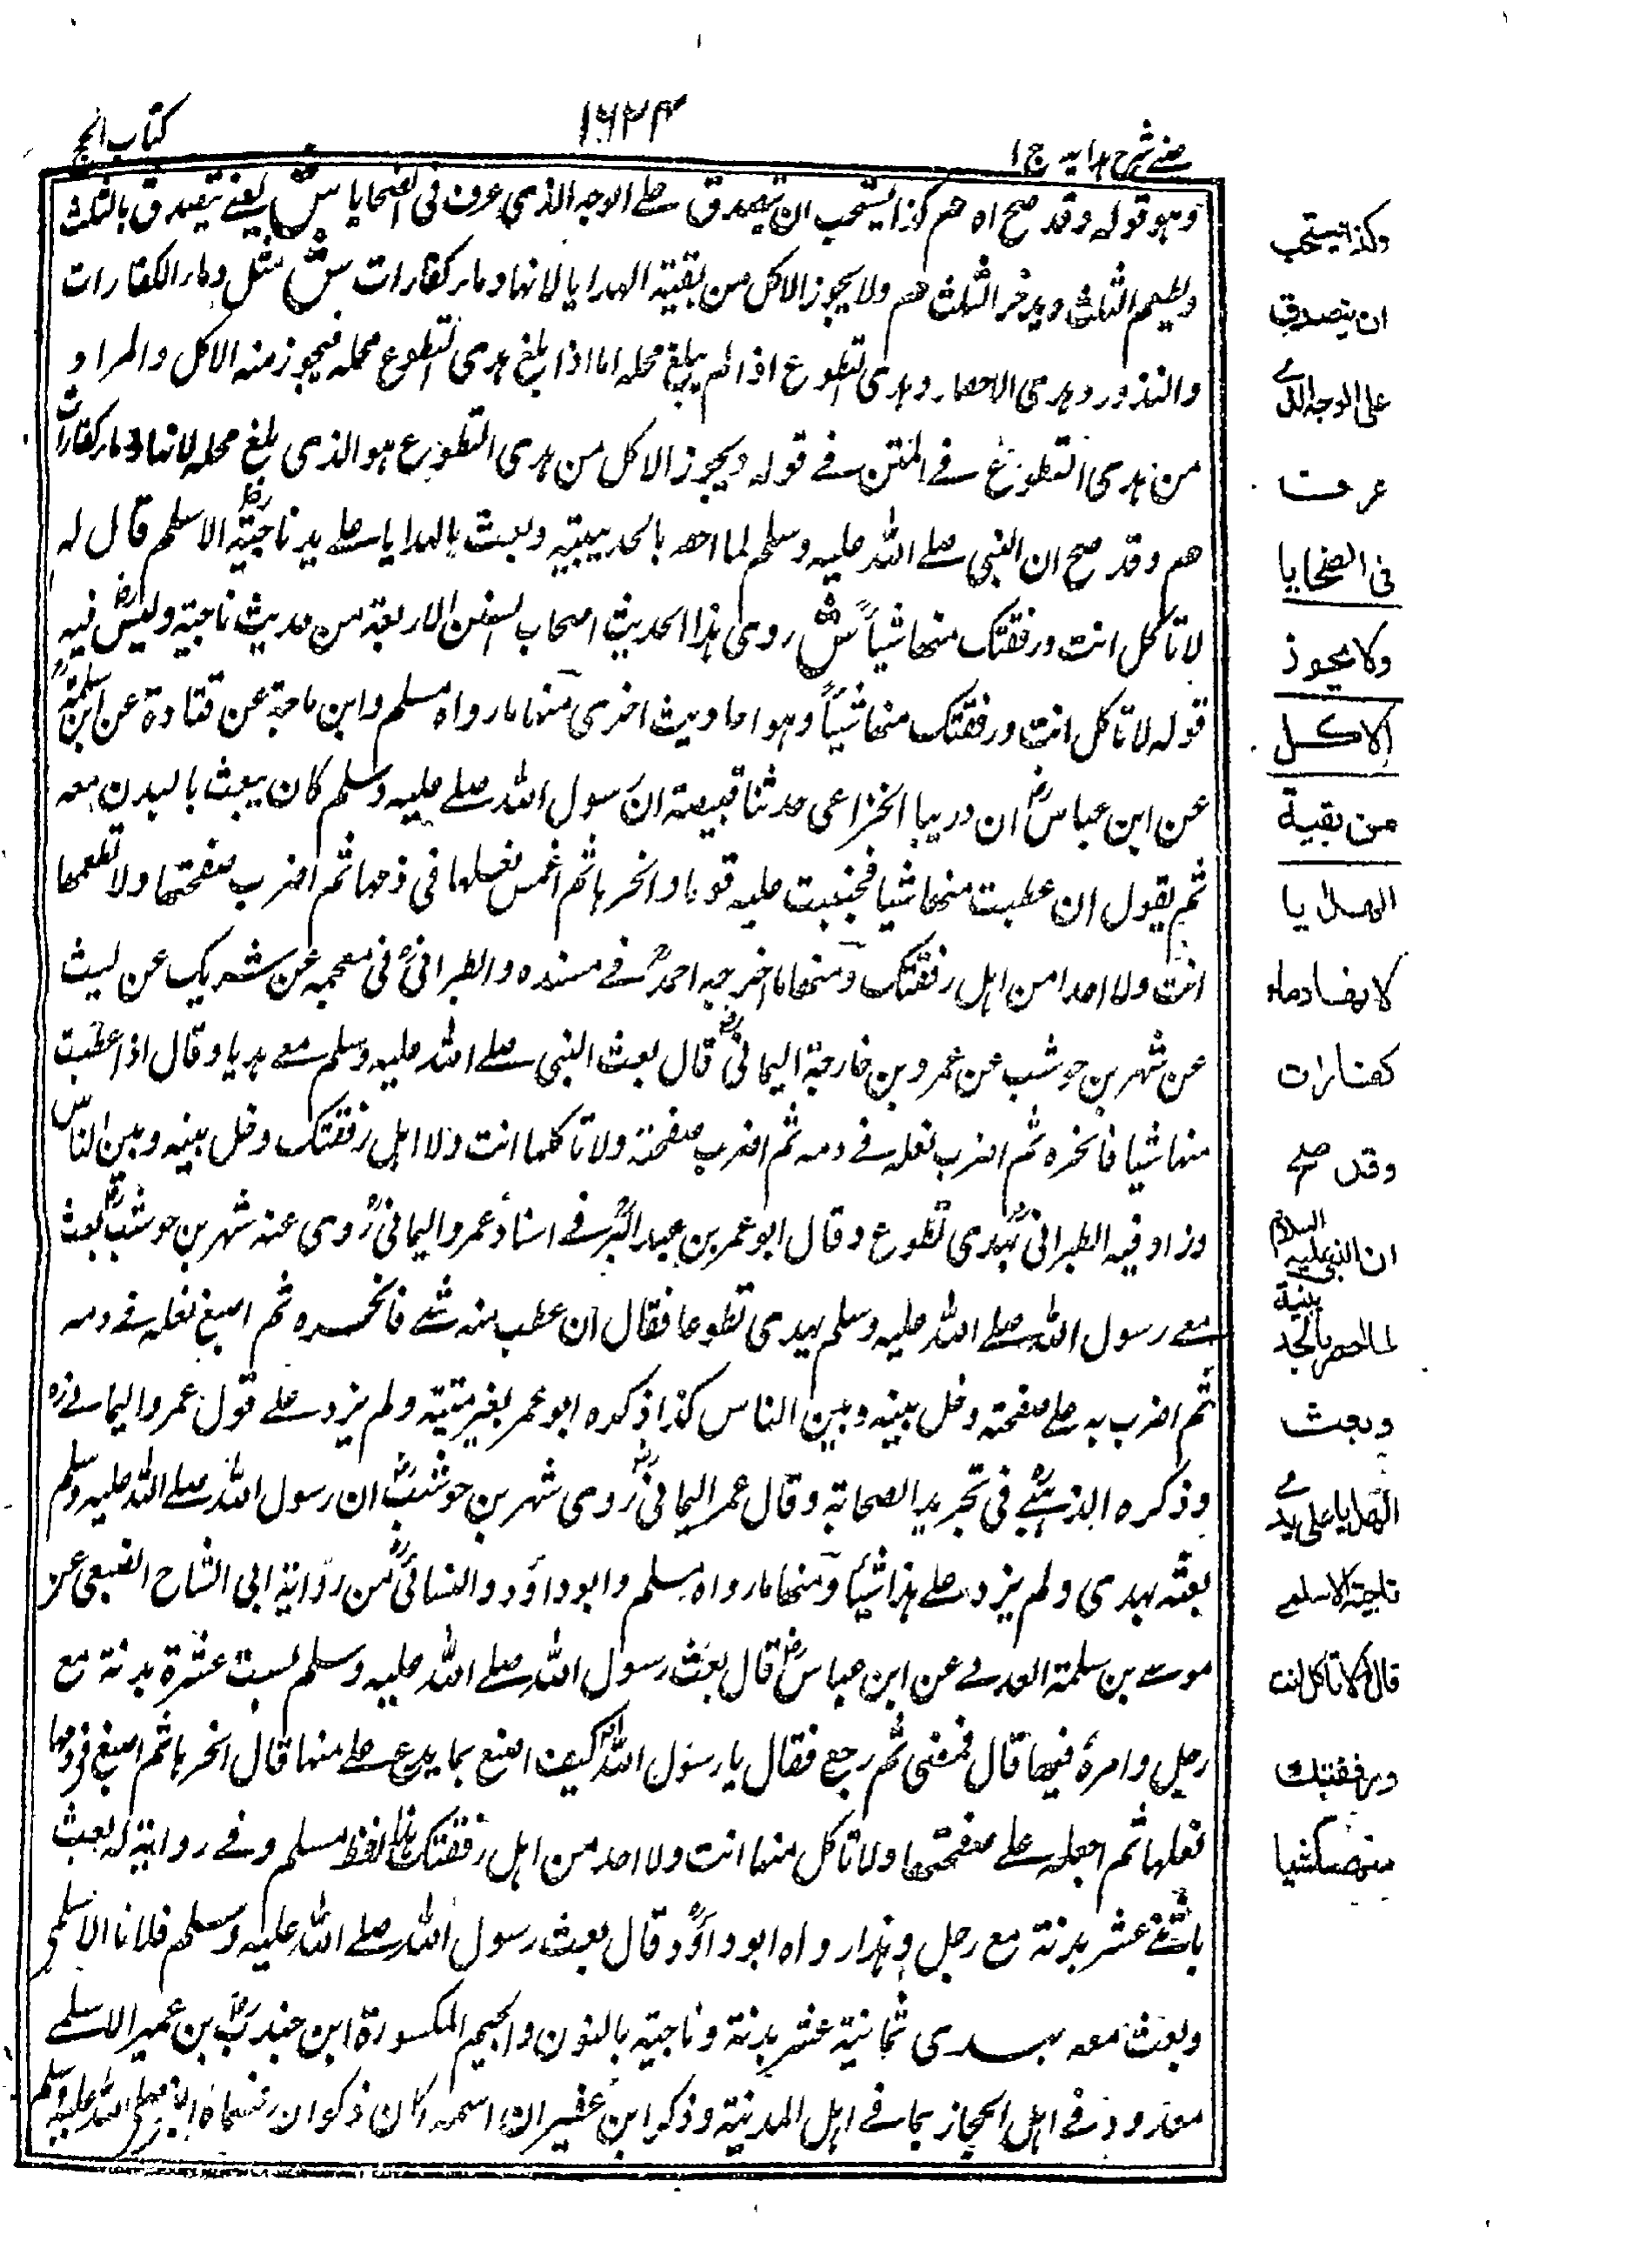 كتاب الحج
١٦٢٣
عينے شرح هدايه ج ١
وهو قوله وقد صح اه هم كذا يستحب ان يتصدق على الوجه الذى عرف فى الضحايا ش يعنے يتصدق بالثلث
ويطعم الثلث ويدخر الثلث هم ولا يجوز الاكل من بقية الهدايا لانها دماء كفارات ش مثل دماء الكفارات
والنذور وهدى الاحصار وهدى التطوع اذا لم يبلغ محله اما اذا بلغ هدى التطوع محله فيجوز منه الاكل والمراد
من هدى التطوع فى المتن فى قوله ويجوز الاكل من هدى التطوع هو الذى بلغ محله لانها دماء كفارات
هم وقد صح ان النبى صلى الله عليه وسلم لما احصر بالحديبية وبعث بالهدايا على يد ناجية الاسلمى قال له
لا تاكل انت ورفقتك منها شيأ ش روى هذا الحديث اصحاب السنن الاربعة من حديث ناجية وليس فيه
قوله لا تاكل انت ورفقتك منها شيأ وهو احاديث اخرى منها ما رواه مسلم وابن ماجة عن قتادة عن ابن سلمة
عن ابن عباس ان دريبا الخزاعى حدثنا قبيصة ان رسول الله صلى عليه وسلم كان يبعث بالبدن معه
ثم يقول ان عطبت منها شيا فخبيت عليه قوتا وانحرها ثم اغمس نعلها فى دمها ثم اضرب صفحتها ولا تطعمها
انت ولا احدا من اهل رفقتك ومنها ما اخرجه احمد فى مسنده والطبرانى فى معجمه عن شريك عن ليث
عن شهر بن حوشب عن عمرو بن خارجة اليمانى قال بعث النبى صلى الله عليه وسلم معى هديا وقال اذا عطبت
منها شيا فانحره ثم اضرب نعله فى دمه ثم اضرب صفحته ولا تاكلها انت ولا اهل رفقتك وخل بينه وبين الناس
وزاد فيه الطبرانى بهدى تطوع وقال ابو عمر بن عبد البر فى اسناد عمرو اليمانى روى عنه شهر بن حوشب بعث
معى رسول الله صلى الله عليه وسلم بهدى تطوعا فقال ان عطب منه شئ فانحره ثم اصبغ نعله فى دمه
ثم اضرب به على صفحته وخل بينه وبين الناس كذا ذكره ابو عمر بغير متنه ولم يزد على قول عمرو اليمانى
وذكره الذهبى فى تجريد الصحابة وقال عمر اليمانى روى شهر بن حوشب ان رسول الله صلى الله عليه وسلم
بعثه بهدى ولم يزد على هذا شيأ ومنها ما رواه مسلم وابو داود والنسائى من رواية ابى التياح الضبعى عن
موسى بن سلمة الهذلى عن ابن عباس قال بعث رسول الله صلى الله عليه وسلم بست عشرة بدنة مع
رجل وامره فيها قال فمضى ثم رجع فقال يا رسول الله كيف اصنع بما يدع على منها قال انحرها ثم اصبغ فى دمها
نعلها ثم اجعله على صفحتها ولا تاكل منها انت ولا احد من اهل رفقتك هذا لفظ مسلم وفى رواية له بعث
باثنى عشر بدنة مع رجل وهذا رواه ابو داود وقال بعث رسول الله صلى الله عليه وسلم فلانا الاسلمى
وبعث معه بهدى ثمانية عشر بدنة وناجية بالنون والجيم المكسورة ابن جندب بن عمير الاسلمى
معدود فى اهل الحجاز بما فى اهل المدينة وذكر ابن عفير ان اسمه كان ذكوان فسماه النبى صلى الله عليه وسلم
وكذا يستحب
ان يتصدق
على الوجه الذى
عرف
فى الضحايا
ولا يجوز
الاكل
من بقية
الهدايا
لانها دماء
كفارات
وقد صح
ان النبى عليه السلام
لما احصر بالحديبية
وبعث
الهدايا على يد
ناجية الاسلمى
قال لا تاكل انت
ورفقتك
منها شيا